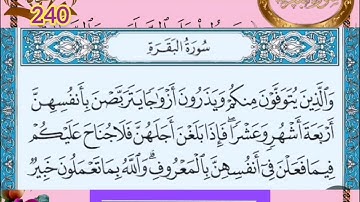 240
سُورَةُ البَقَرَةِ
وَالَّذِينَ يُتَوَفَّوْنَ مِنكُمْ وَيَذَرُونَ أَزْوَاجًا يَتَرَبَّصْنَ بِأَنفُسِهِنَّ
أَرْبَعَةَ أَشْهُرٍ وَعَشْرًا ۖ فَإِذَا بَلَغْنَ أَجَلَهُنَّ فَلَا جُنَاحَ عَلَيْكُمْ
فِيمَا فَعَلْنَ فِي أَنفُسِهِنَّ بِالْمَعْرُوفِ ۗ وَاللَّهُ بِمَا تَعْمَلُونَ خَبِيرٌ